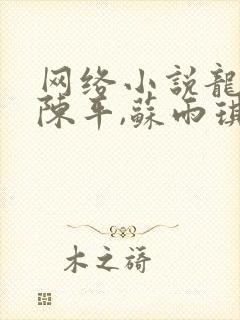 网络小説龍
陳平,蘇雨琪
木之謌